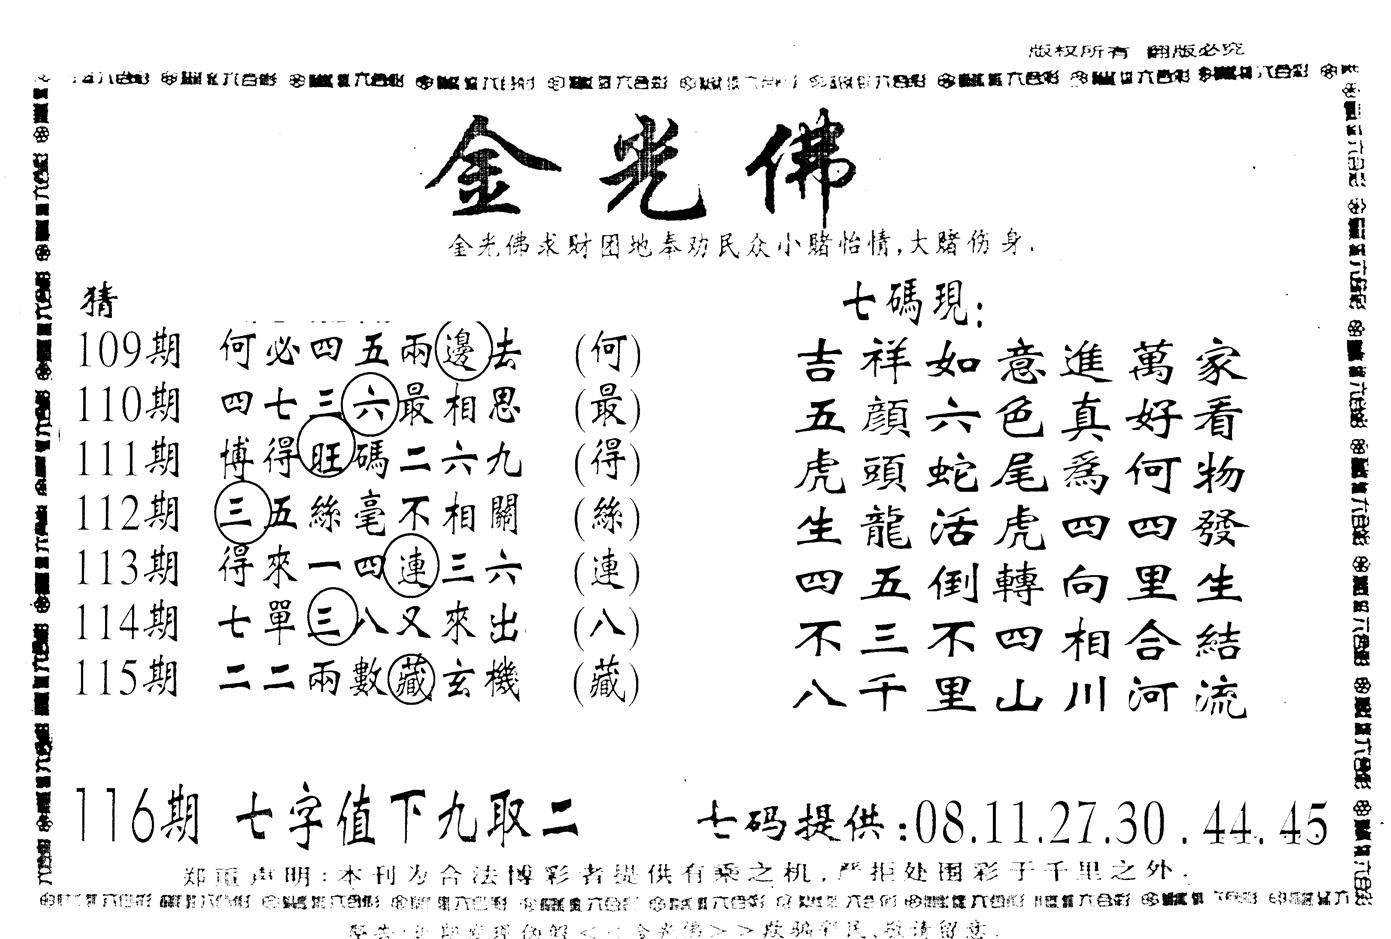 版权所有 翻版必究
金光佛
金光佛求财团地奉劝民众小赌怡情,大赌伤身.
猜
109期 何必四五兩邊去 (何)
110期 四七三六最相思 (最)
111期 博得旺碼二六九 (得)
112期 三五絲毫不相關 (絲)
113期 得來一四連三六 (連)
114期 七單三八又來出 (八)
115期 二二兩數藏玄機 (藏)
七碼現:
吉祥如意進萬家
五顏六色真好看
虎頭蛇尾爲何物
生龍活虎四四發
四五倒轉向里生
不三不四相合結
八千里山川河流
116期 七字值下九取二
七码提供:08.11.27.30.44.45
郑重声明:本刊为合法博彩者提供有乘之机,严拒处围彩于千里之外.
警告:近期发现伪解<<金光佛>>欺骗彩民,敬请留意.